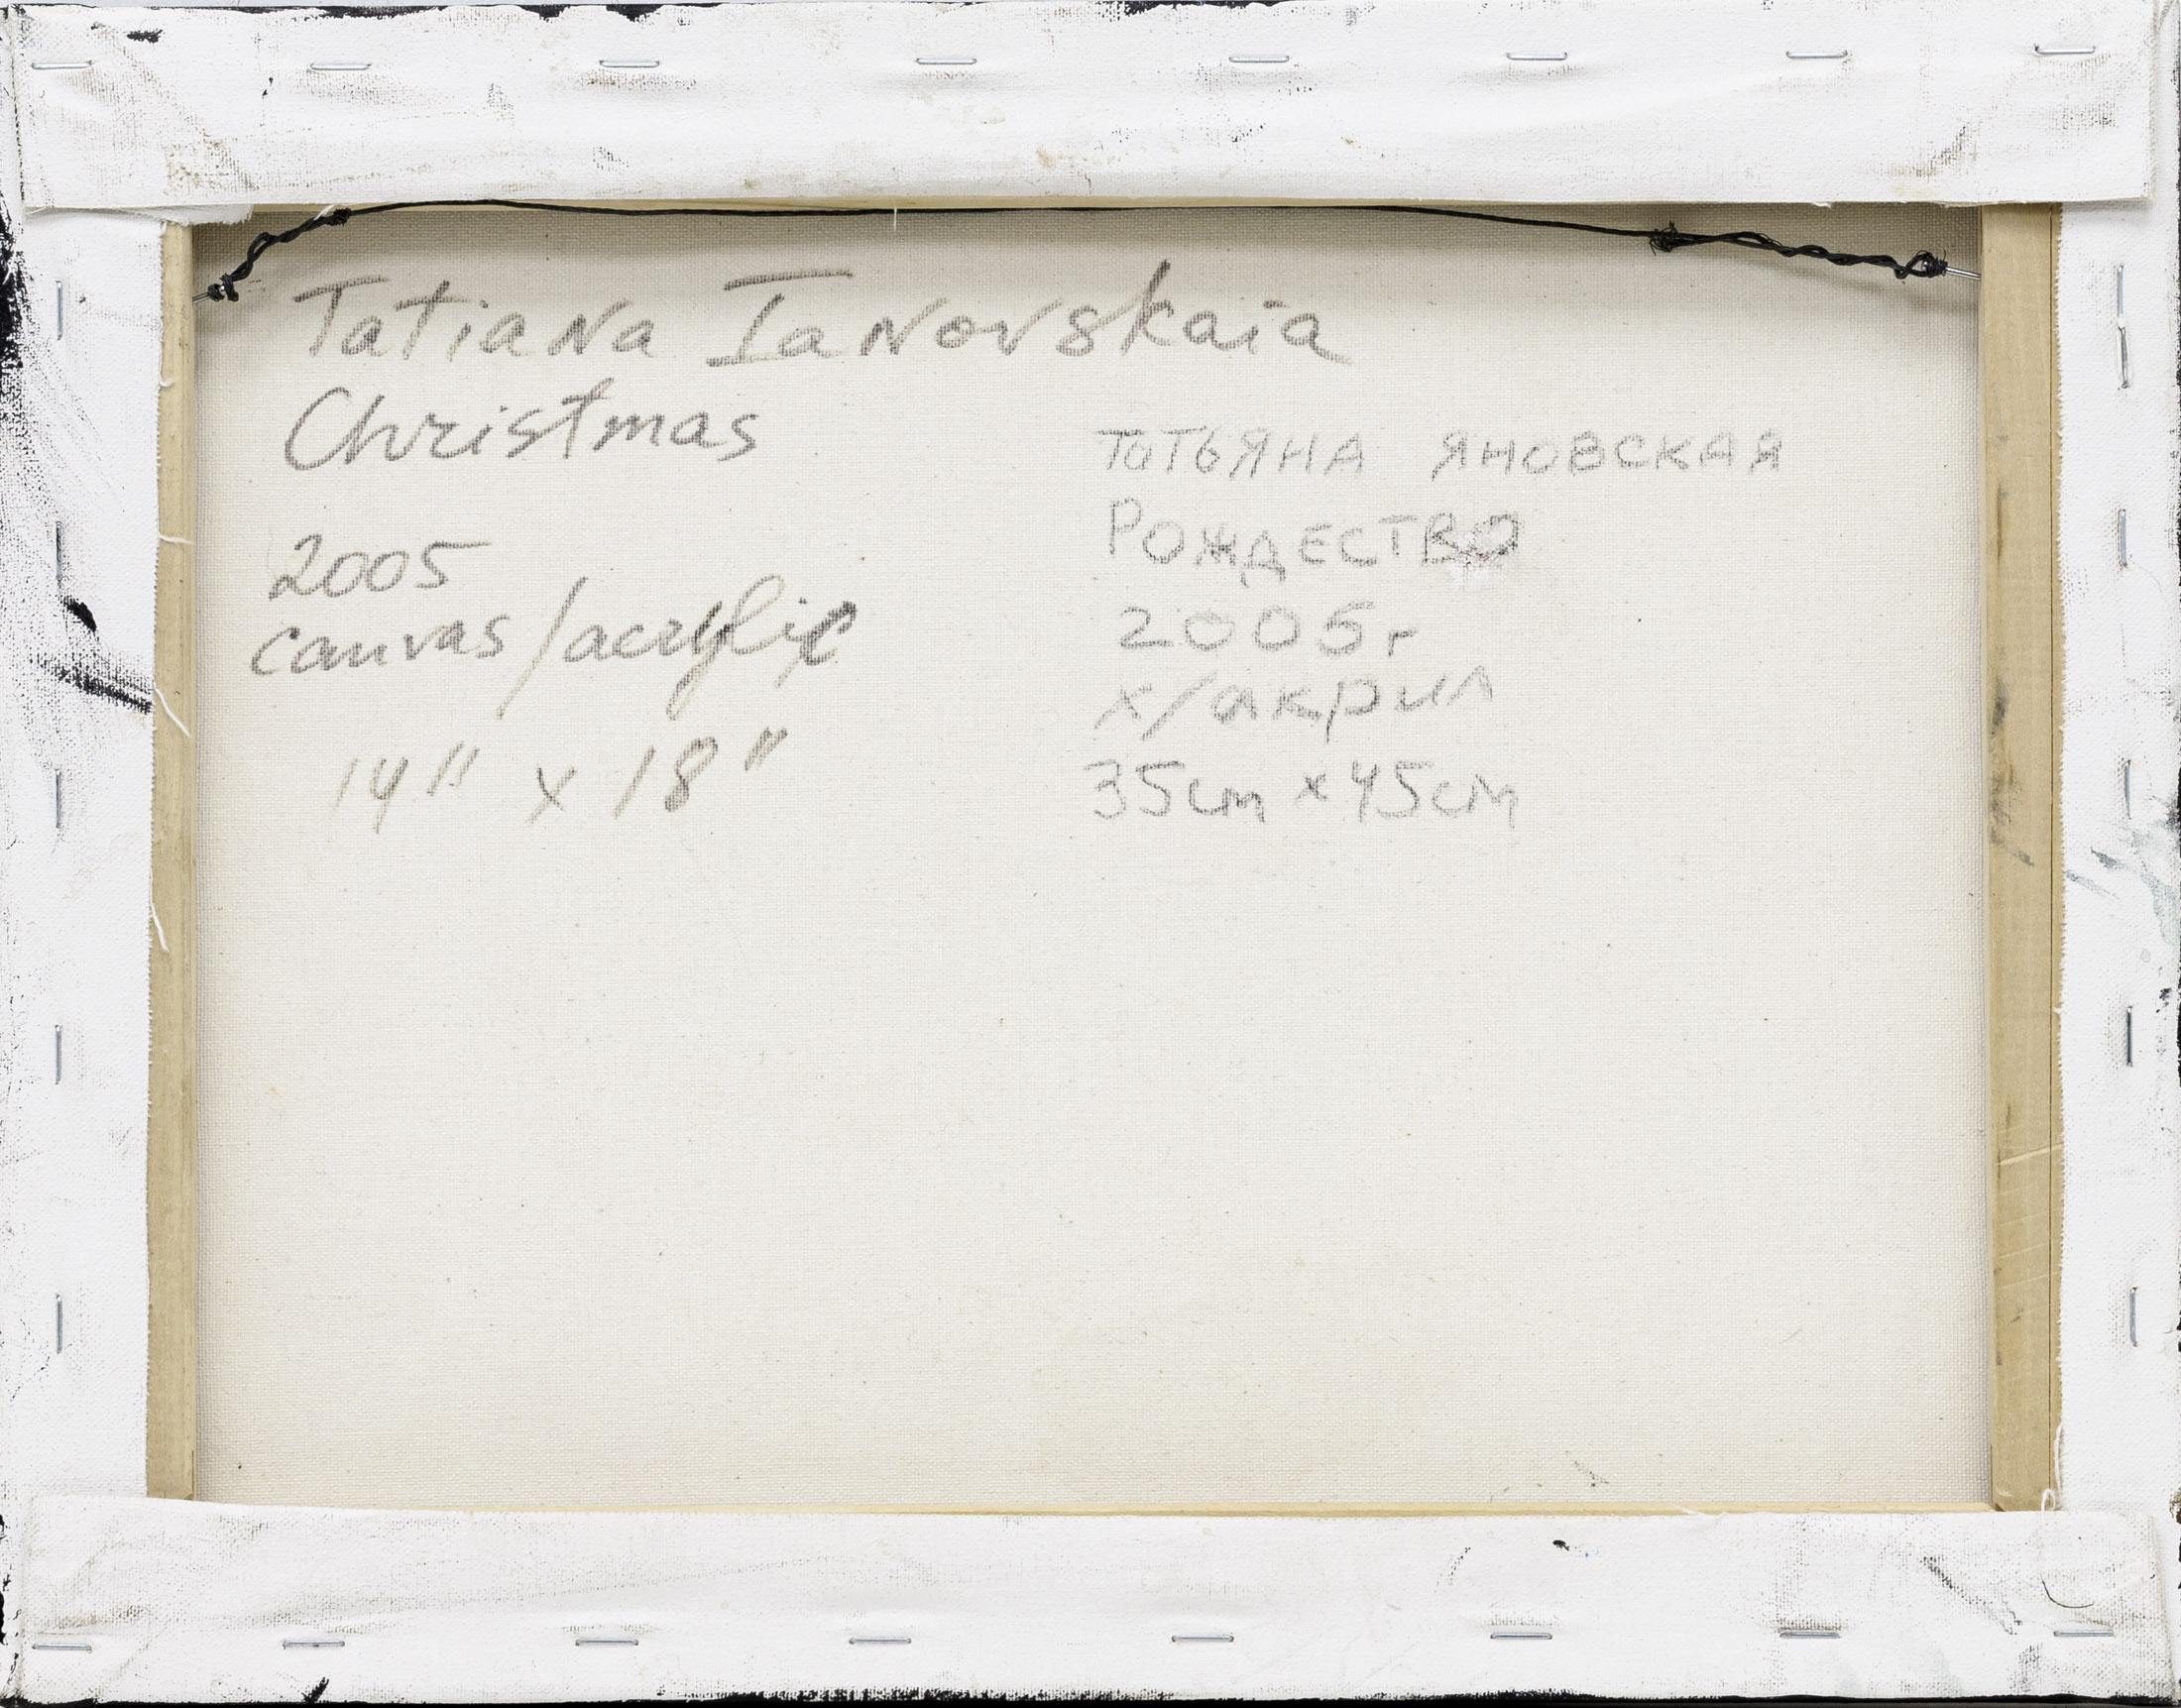 Tatiana Ianovskaia
Christmas
2005
canvas/acrylic
14" x 18"
ТаТЬЯНА ЯНОВСКАЯ
РОЖДЕСТВО
2005г
х/акрил
35cm x 45cm